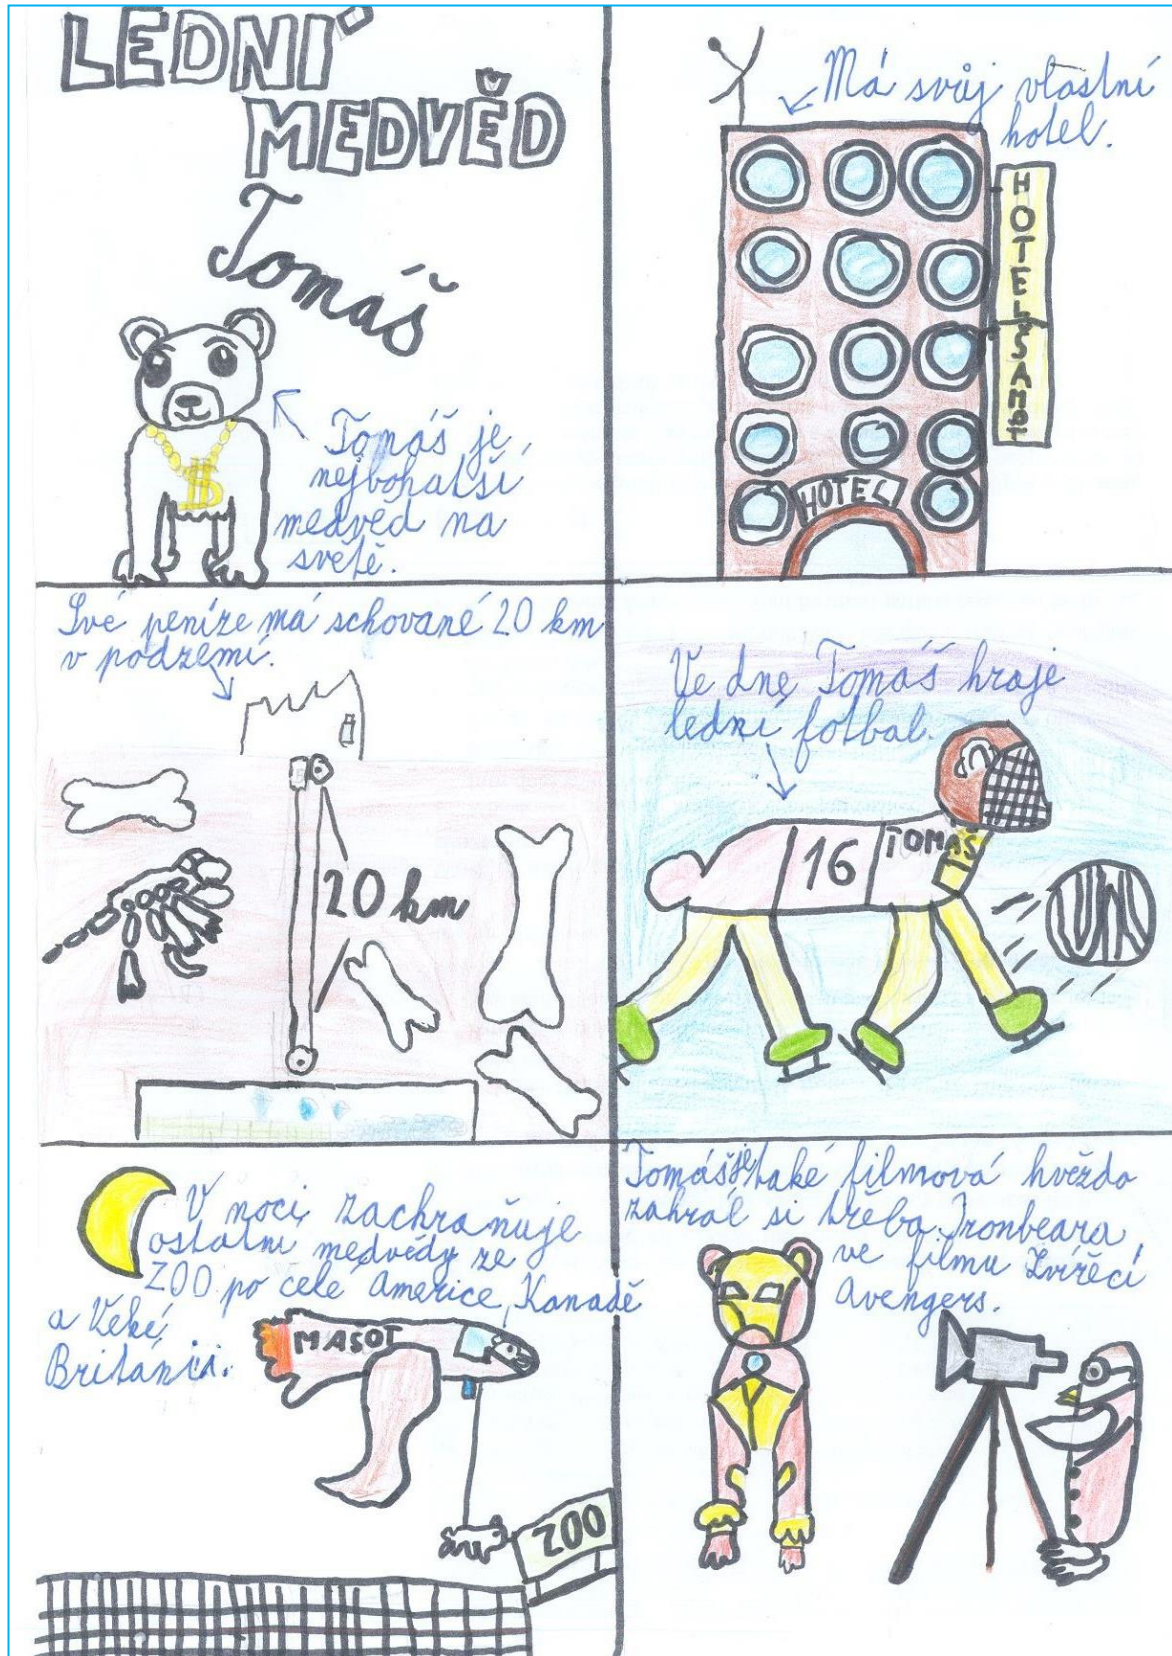 LEDNÍ
MEDVĚD
Tomáš
Tomáš je
nejbohatší
medvěd na
světě.
Má svůj vlastní
hotel.
HOTEL ŠAMOT
HOTEL
Své peníze má schované 20 km
v podzemí.
20 km
Ve dne Tomáš hraje
lední fotbal.
16
TOMÁŠ
V noci zachraňuje
ostatní medvědy ze
ZOO po celé Americe, Kanadě
a Veké
Británii.
MAŠOT
ZOO
Tomáš je také filmová hvězda
zahrál si třeba Ironbeara
ve filmu Zvířecí
Avengers.